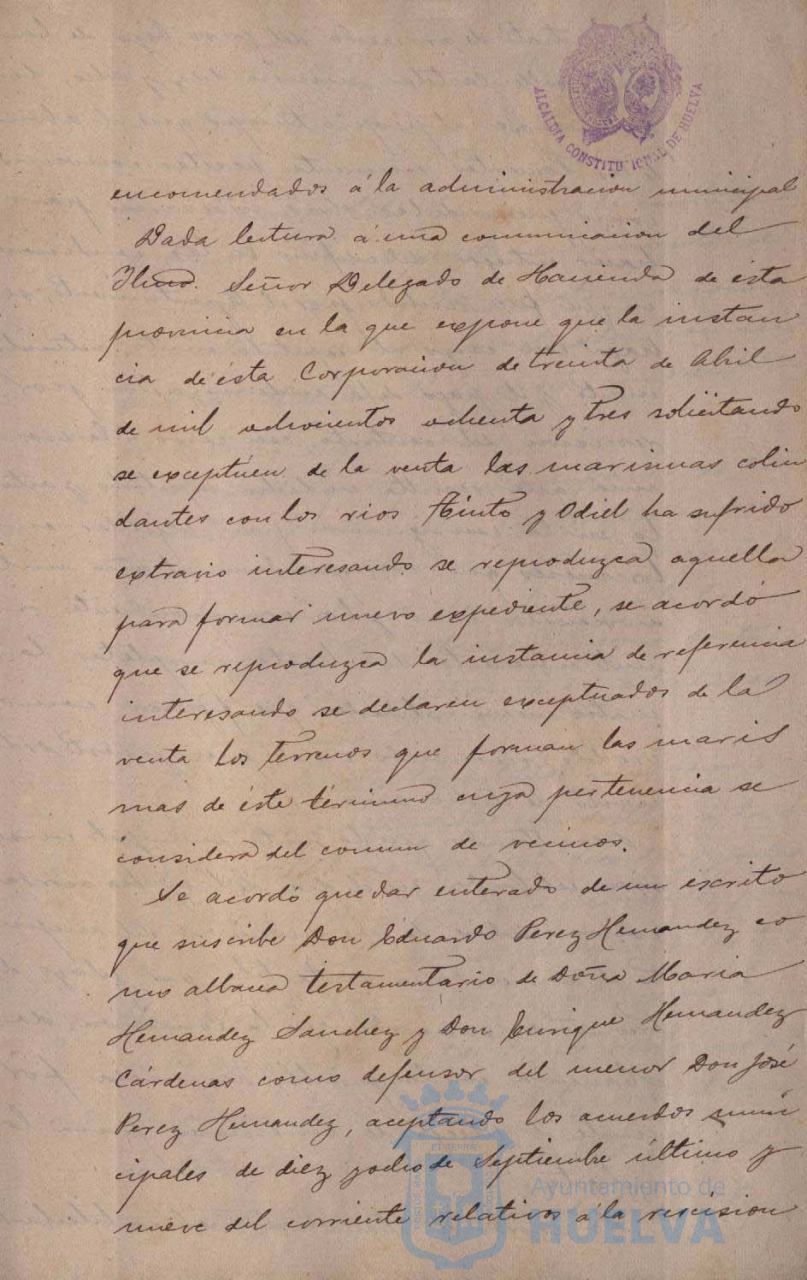 ALCALDIA CONSTITUCIONAL DE HUELVA
encomendados á la administracion municipal
Dada lectura á una comunicacion del
Ilmo. Señor Delegado de Hacienda de ésta
provincia en la que expone que la instan
cia de ésta Corporacion de treinta de Abril
de mil ochocientos ochenta y tres solicitando
se exceptúen de la venta las marismas colin
dantes con los rios Tinto y Odiel ha sufrido
extravio interesando se reproduzca aquella
para formar nuevo expediente, se acordó
que se reproduzca la instancia de referencia
interesando se declaren exceptuados de la
venta los terrenos que forman las maris
mas de éste término cuya pertenencia se
considera del comun de vecinos.
Se acordó quedar enterado de un escrito
que suscribe Don Eduardo Perez Hernandez co
mo albacea testamentario de Doña Maria
Hernandez Sanchez y Don Enrique Hernandez
Cárdenas como defensor del menor Don José
Perez Hernandez, aceptando los acuerdos muni
cipales de diez y ocho de Septiembre último y
nueve del corriente relativos á la rescision
Ayuntamiento de
HUELVA